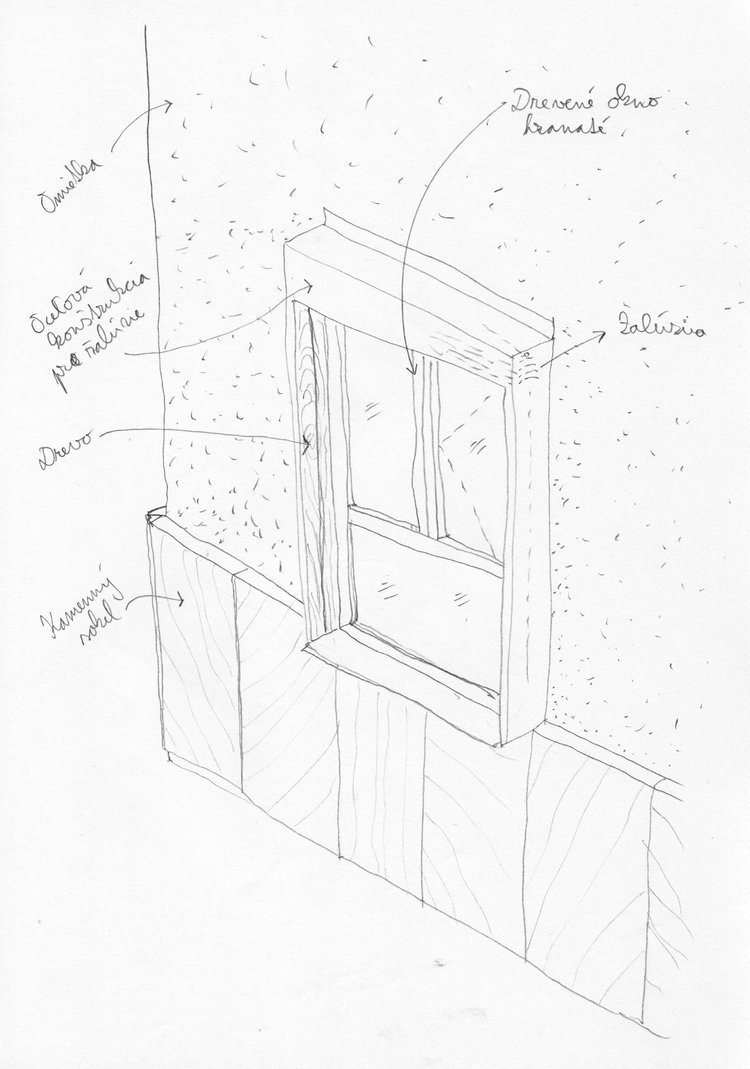 Drevené okno
hranaté
Omietka
Oceľová
konštrukcia
pre žalúzie
Žalúzia
Drevo
Kamenný
sokel